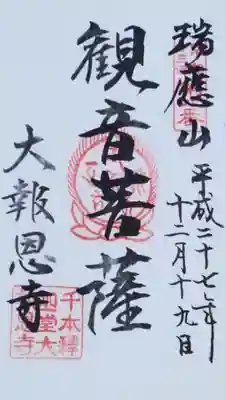 瑞應山
平成二十七年
十二月十九日
観音菩薩
大報恩寺
千本釋
迦堂大
恩寺